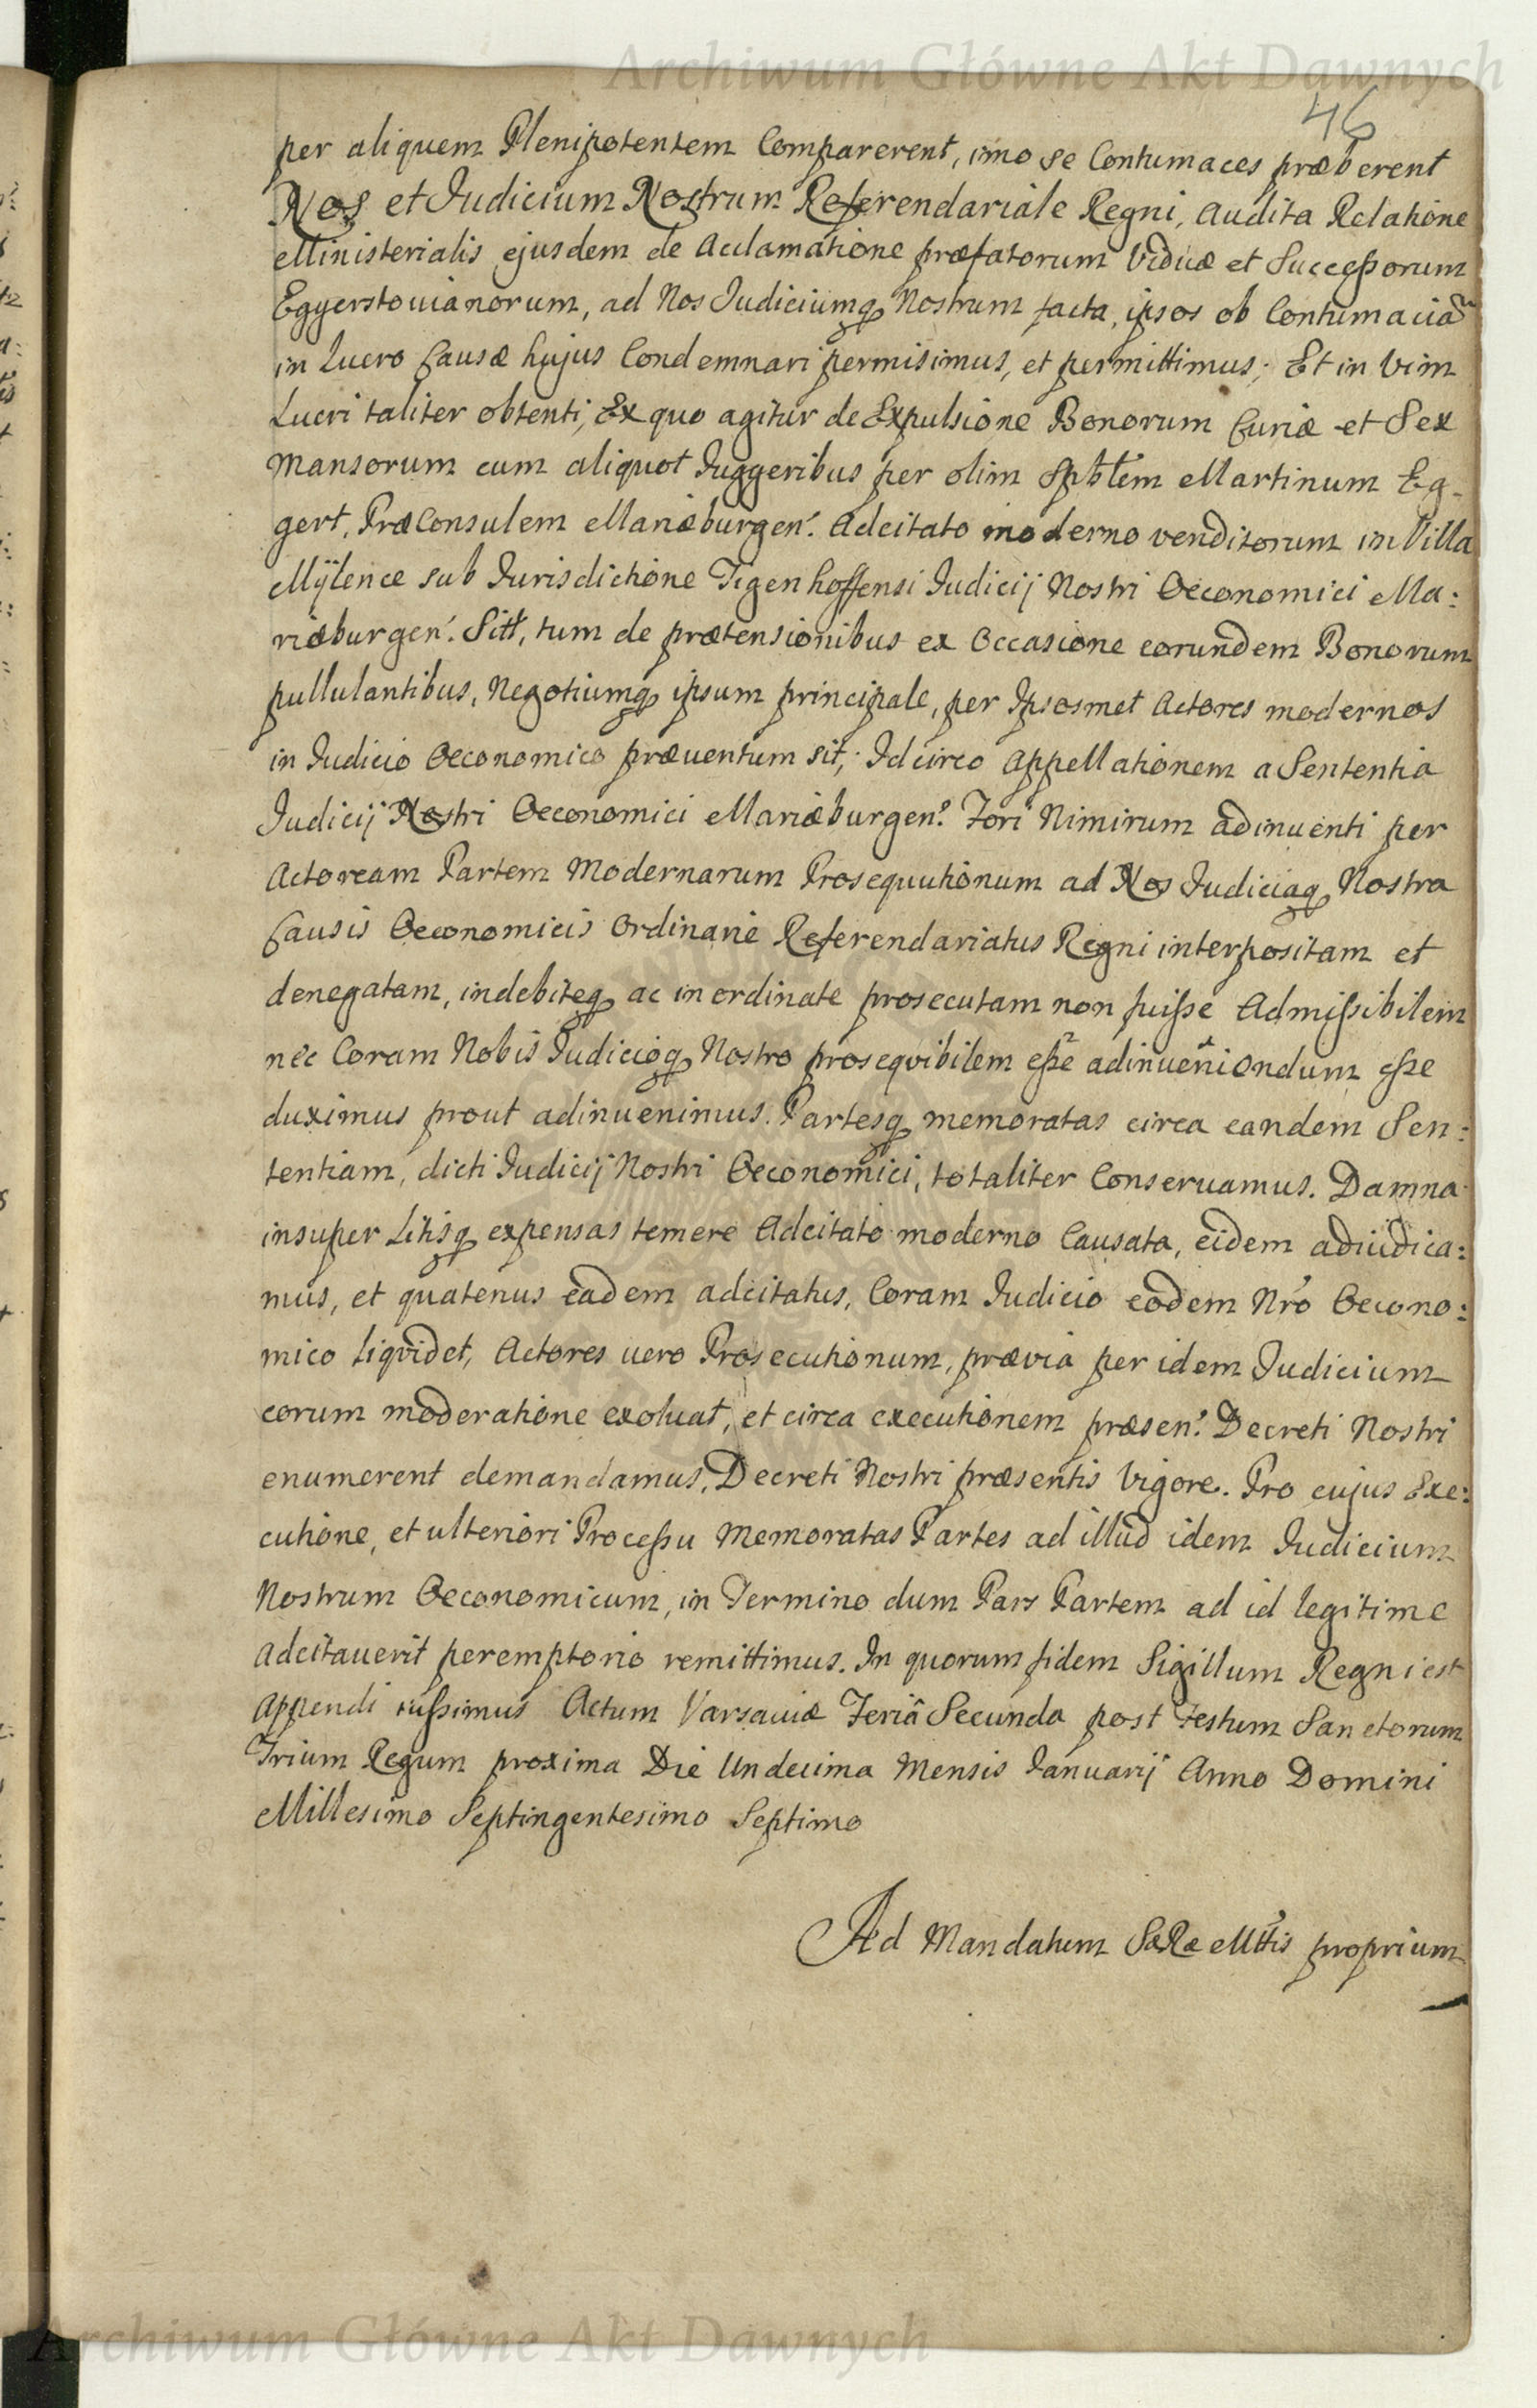 Archiwum Główne Akt Dawnych
46
per aliquem Plenipotentem Comparerent, imo se Contumaces præberent
Nos et Judicium Nostrum Referendariale Regni, Audita Relatione
Ministerialis ejusdem de Acclamatione præfatorum Viduæ et Successorum
Eggerstovianorum, ad Nos Judiciumq Nostrum facta, ipsos ob Contumaciã
in Lucro Causæ hujus Condemnari permisimus, et permittimus; Et in Vim
Lucri taliter obtenti, Ex quo agitur de Expulsione Bonorum Curiæ et Sex
Mansorum cum aliquot Juggeribus per olim Spbtem Martinum Eg-
gert, PræConsulem Mariæburgen. Adcitato moderno venditorum in Villa
Mÿlence sub Jurisdictione Tigenhoffensi Judicij Nostri Oeconomici Ma:
riæburgen. Sitt, tum de prætensionibus ex Occasione eorundem Bonorum
pullulantibus, Negotiumq ipsum principale, per Ipsosmet Actores modernos
in Judicio Oeconomico præventum sit; Idcirco Appellationem a Sententia
Judicij Nostri Oeconomici Mariæburgen. Fori Nimirum adinventi per
Actoream Partem Modernarum Prosequutionum ad Nos Judiciaq Nostra
Causis Oeconomicis Ordinarie Referendariatus Regni interpositam et
denegatam, indebiteq ac inordinate prosecutam non fuisse Admissibilem
nec Coram Nobis Judicioq Nostro prosequibilem esse adinveniendum esse
duximus prout adinvenimus. Partesq memoratas circa eandem Sen:
tentiam, dicti Judicij Nostri Oeconomici, totaliter Conservamus. Damna
insuper Litisq expensas temere Adcitato moderno Causata, eidem adiudica:
mus, et quatenus eadem adcitatus, Coram Judicio eodem Nro Oecono:
mico Liqvidet, Actores vero Prosecutionum, prævia per idem Judicium
eorum moderatione exolvat, et circa executionem præsen. Decreti Nostri
enumerent demandamus, Decreti Nostri præsentis Vigore. Pro cujus Exe:
cutione, et ulteriori Processu Memoratas Partes ad illud idem Judicium
Nostrum Oeconomicum, in Termino dum Pars Partem ad id legitime
Adcitaverit peremptorio remittimus. In quorum fidem Sigillum Regni est
Appendi iussimus Actum Varsaviæ Feriâ Secunda post Festum Sanctorum
Trium Regum proxima Die Undecima Mensis Januarij Anno Domini
Millesimo Septingentesimo Septimo
Ad Mandatum SæRæ Mttis proprium
Archiwum Główne Akt Dawnych